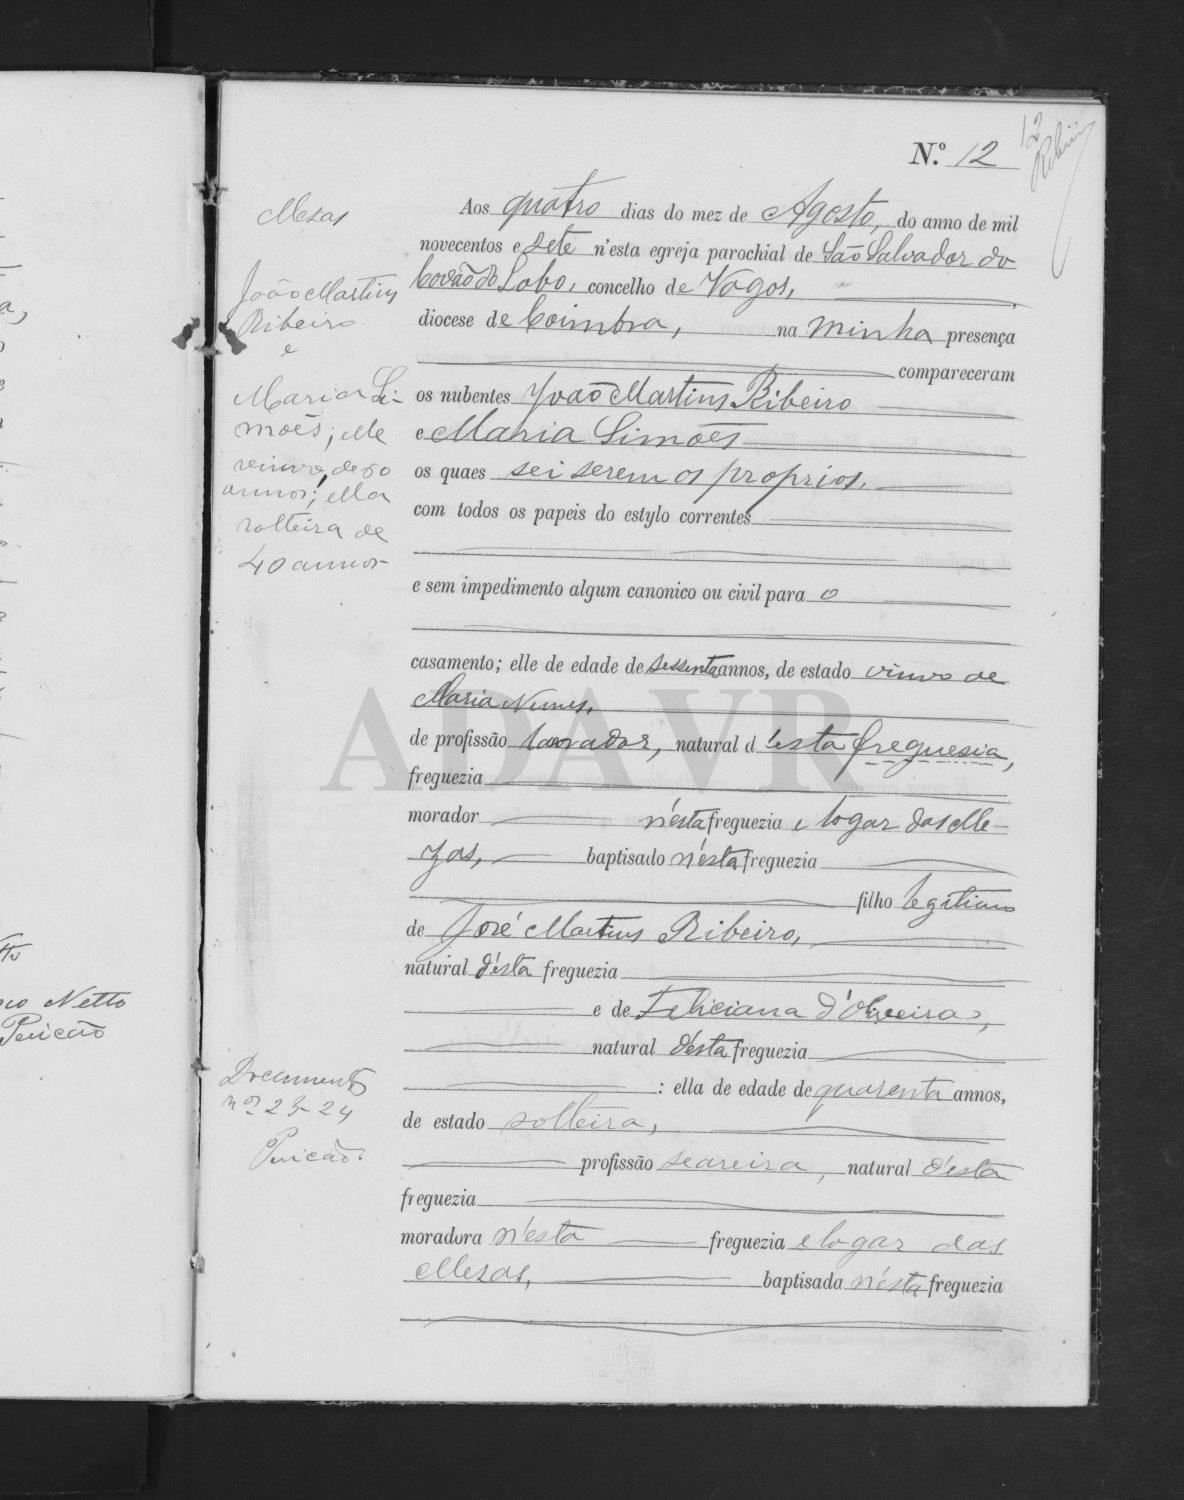 12
Nº 12
Mezas
João Martins
Ribeiro
e
Maria Si-
mões; elle
viuvo, de 60
annos; ella
solteira de
40 annos
Aos quatro dias do mez de Agosto, do anno de mil
novecentos e sete n'esta egreja parochial de São Salvador do
Covão do Lobo, concelho de Vagos,
diocese de Coimbra, na minha presença
compareceram
os nubentes João Martins Ribeiro
e Maria Simões
os quaes sei serem os proprios,
com todos os papeis do estylo correntes
e sem impedimento algum canonico ou civil para o
casamento; elle de edade de sessenta annos, de estado viuvo de
Maria Nunes,
de profissão lavrador, natural d'esta freguesia,
freguezia
morador n'esta freguezia e logar das Me-
zas, baptisado n'esta freguezia
filho legitimo
de José Martins Ribeiro,
natural d'esta freguezia
e de Feliciana d'Oliveira,
natural d'esta freguezia
: ella de edade de quarenta annos,
de estado solteira,
profissão seareira, natural d'esta
freguezia
moradora n'esta freguezia e logar das
Mezas, baptisada n'esta freguezia
Documentos
nos 23-24
ADAVR
Netto